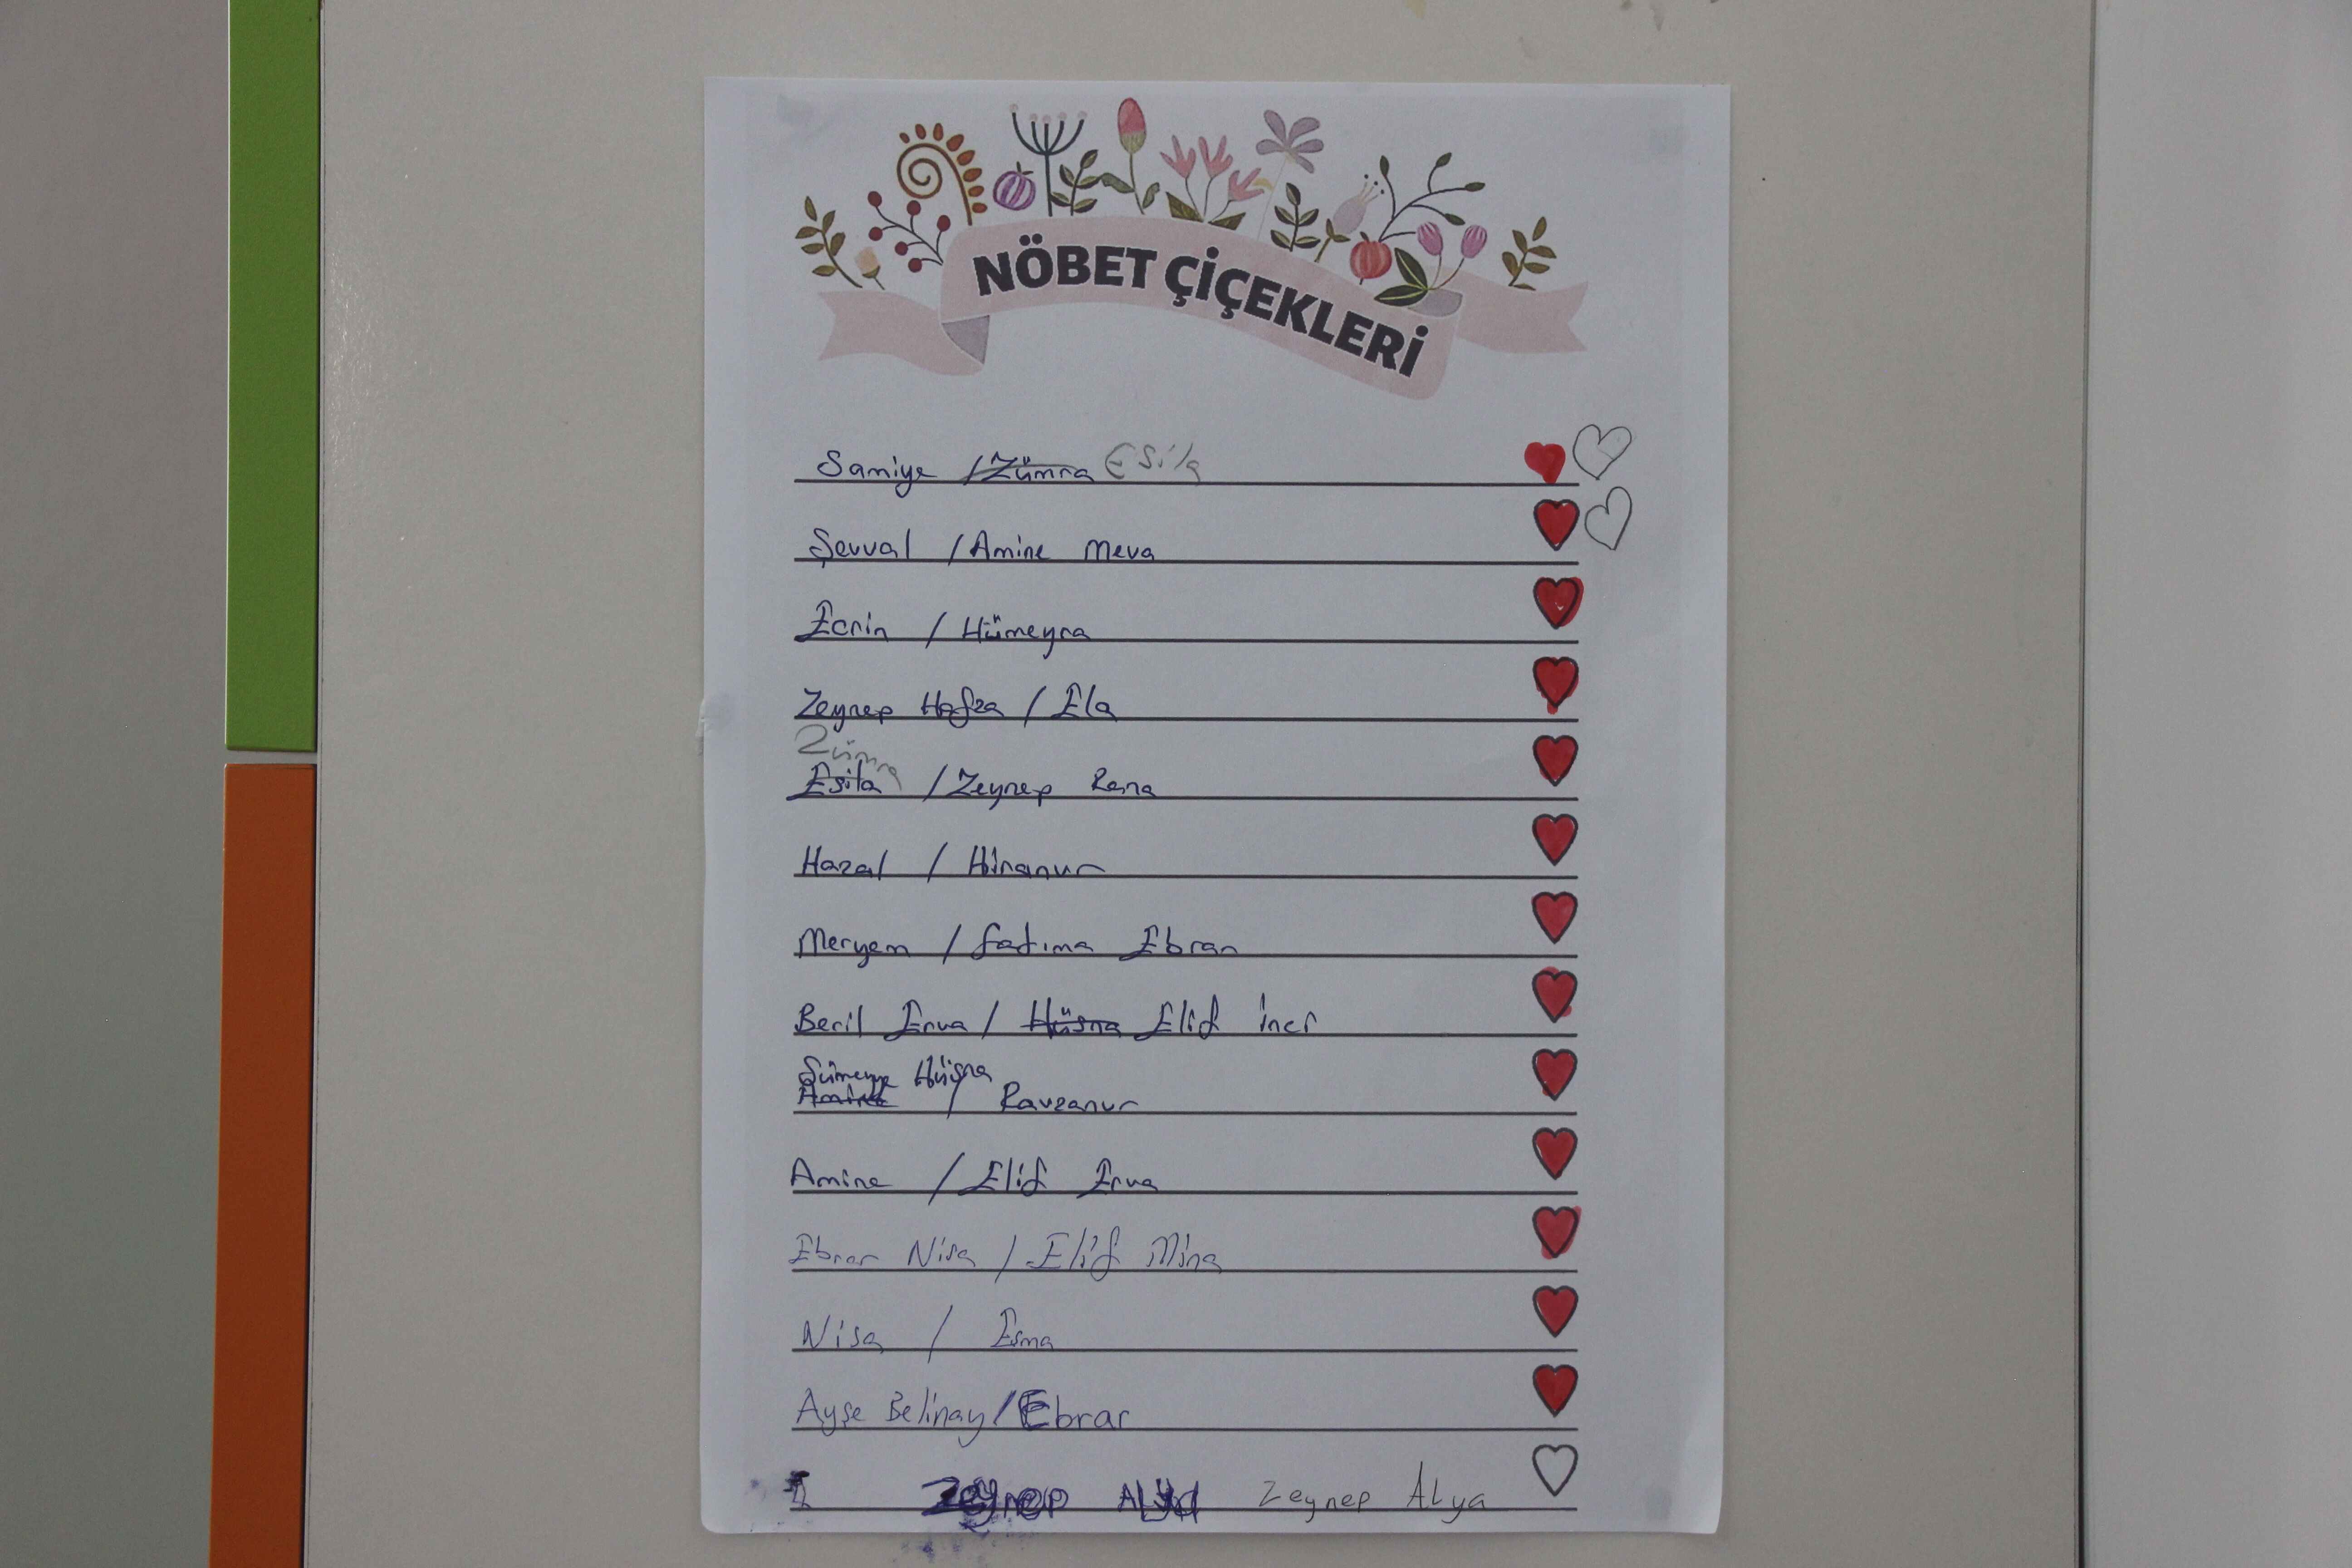 NÖBET ÇİÇEKLERİ
Samiye / Zümra Esila
Şevval / Amine Meva
Ecrin / Hümeyra
Zeynep Hafza / Ela
Zümra
Esila / Zeynep Rana
Hazal / Hiranur
Meryem / Fatıma Ebrar
Beril Erva / Hüsna Elif İnci
Sümeyye Hüsna
Amine / Ravzanur
Amine / Elif Erva
Ebrar Nisa / Elif Mina
Nisa / Esma
Ayşe Belinay / Ebrar
Zeynep ALya Zeynep ALya